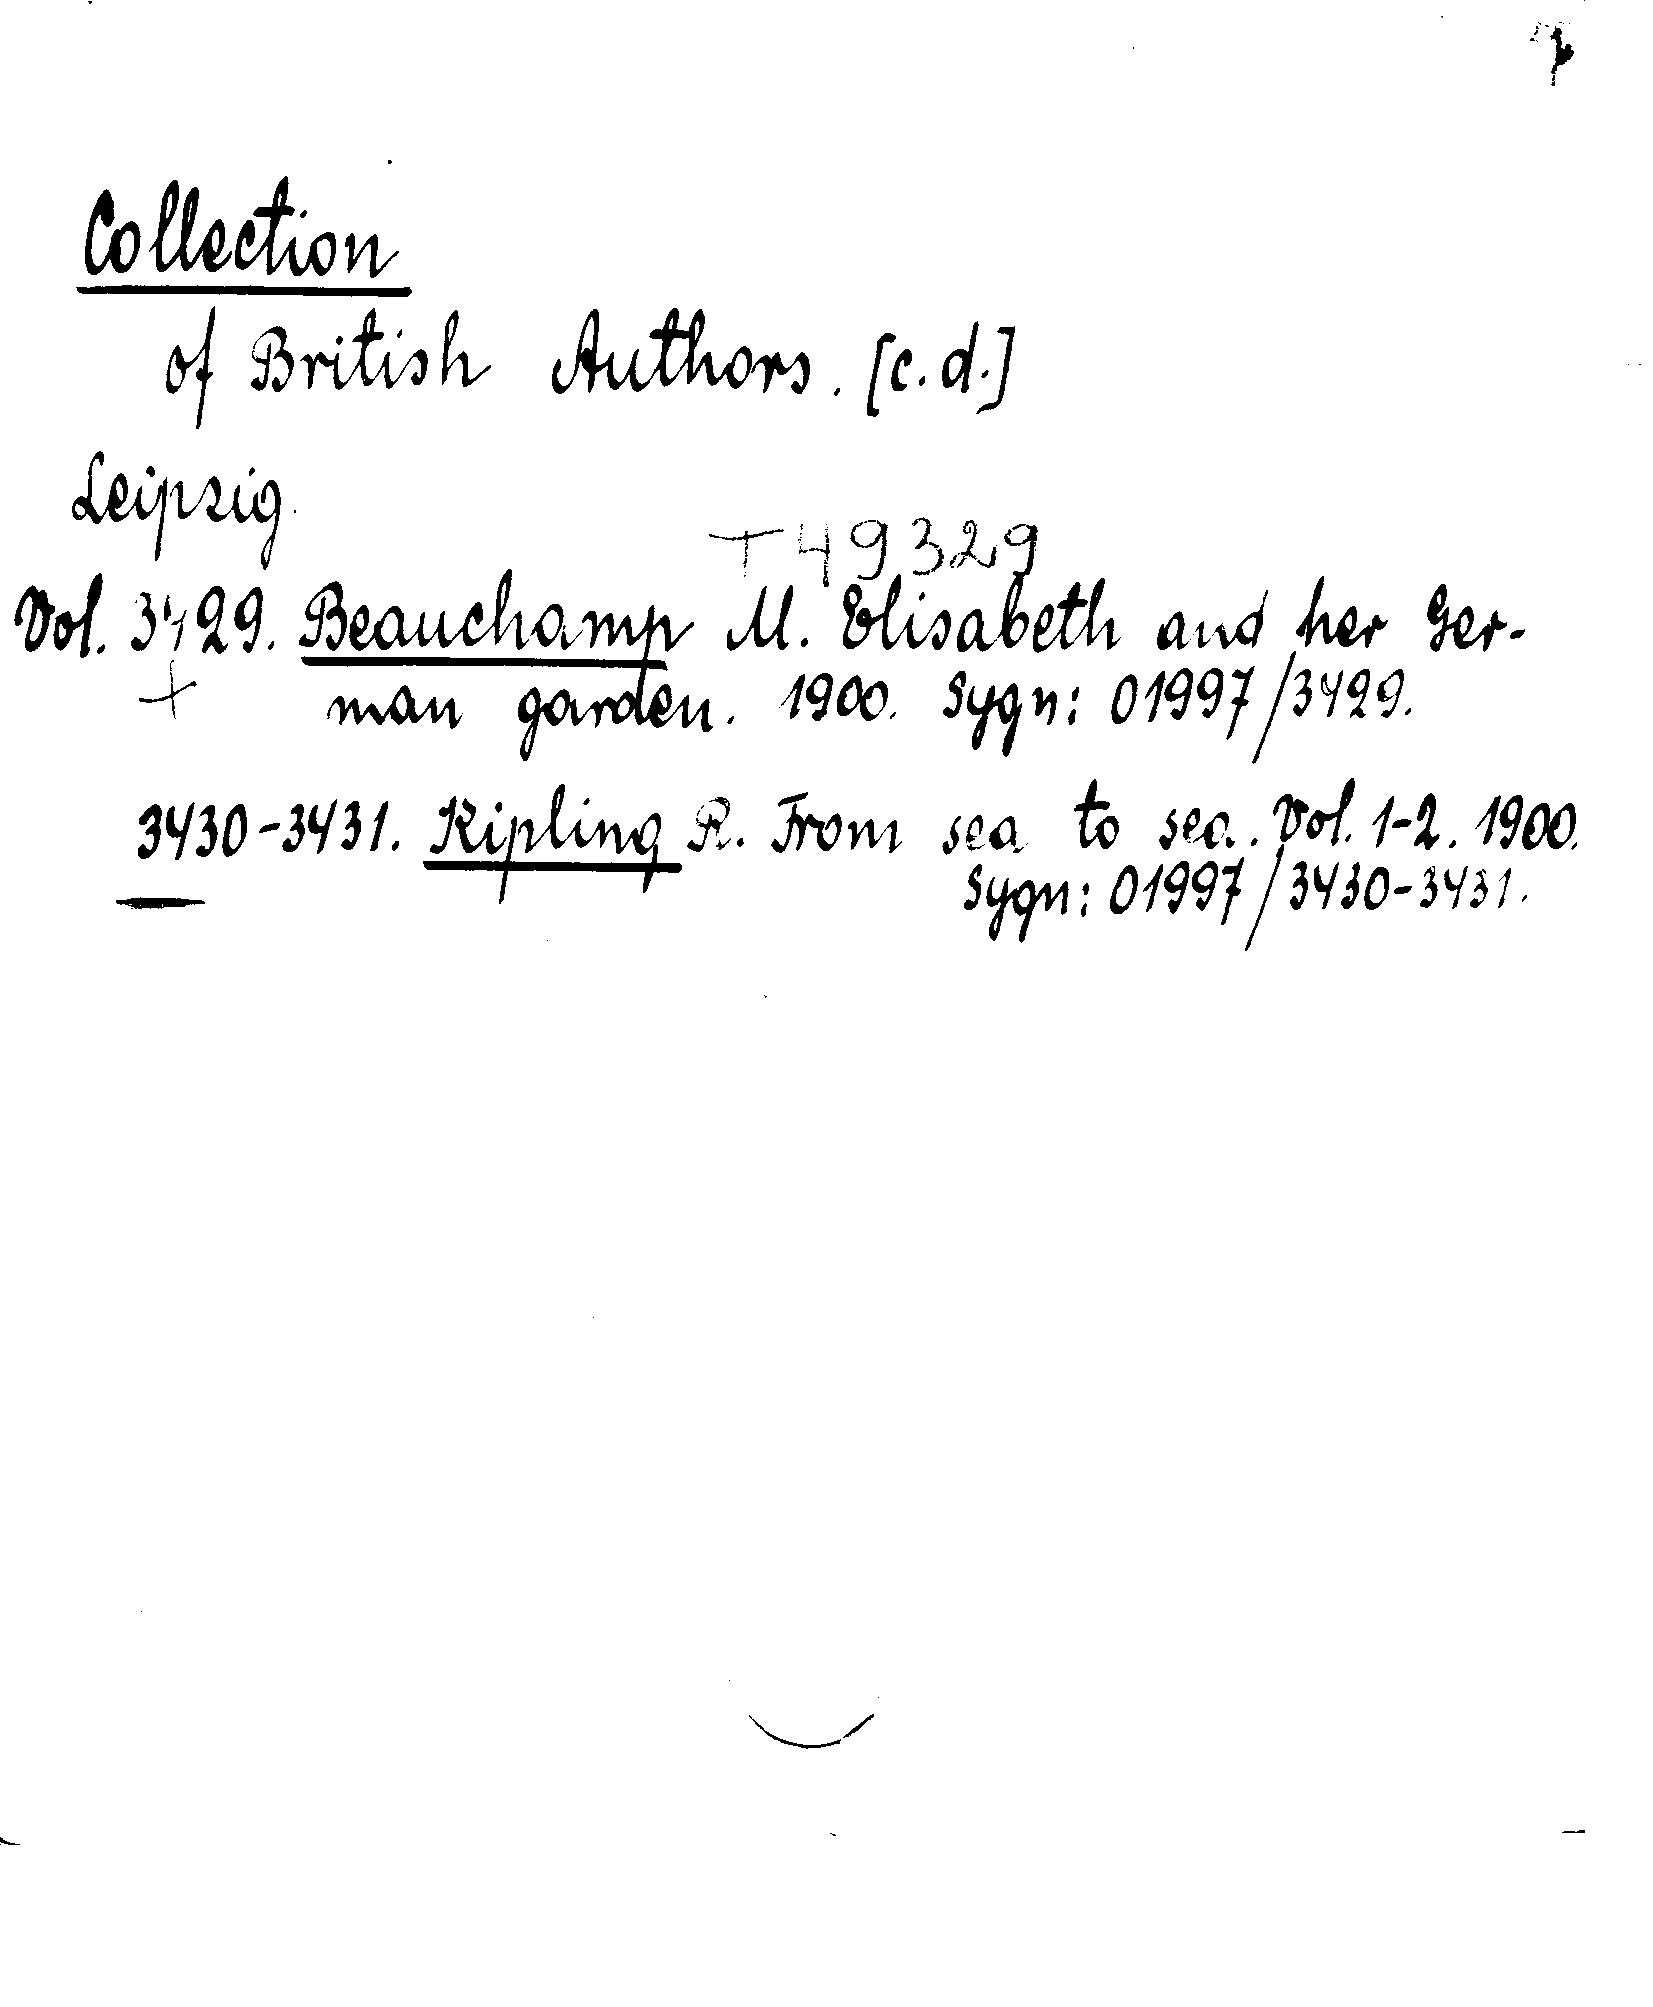 Collection
of British Authors. [c.d.]
Leipzig.
+ 49329
Vol. 3429. Beauchamp M. Elisabeth and her Ger-
+ man garden. 1900. Sygn: 01997/3429.
3430-3431. Kipling R. From sea to sea. Vol. 1-2. 1900.
Sygn: 01997/3430-3431.